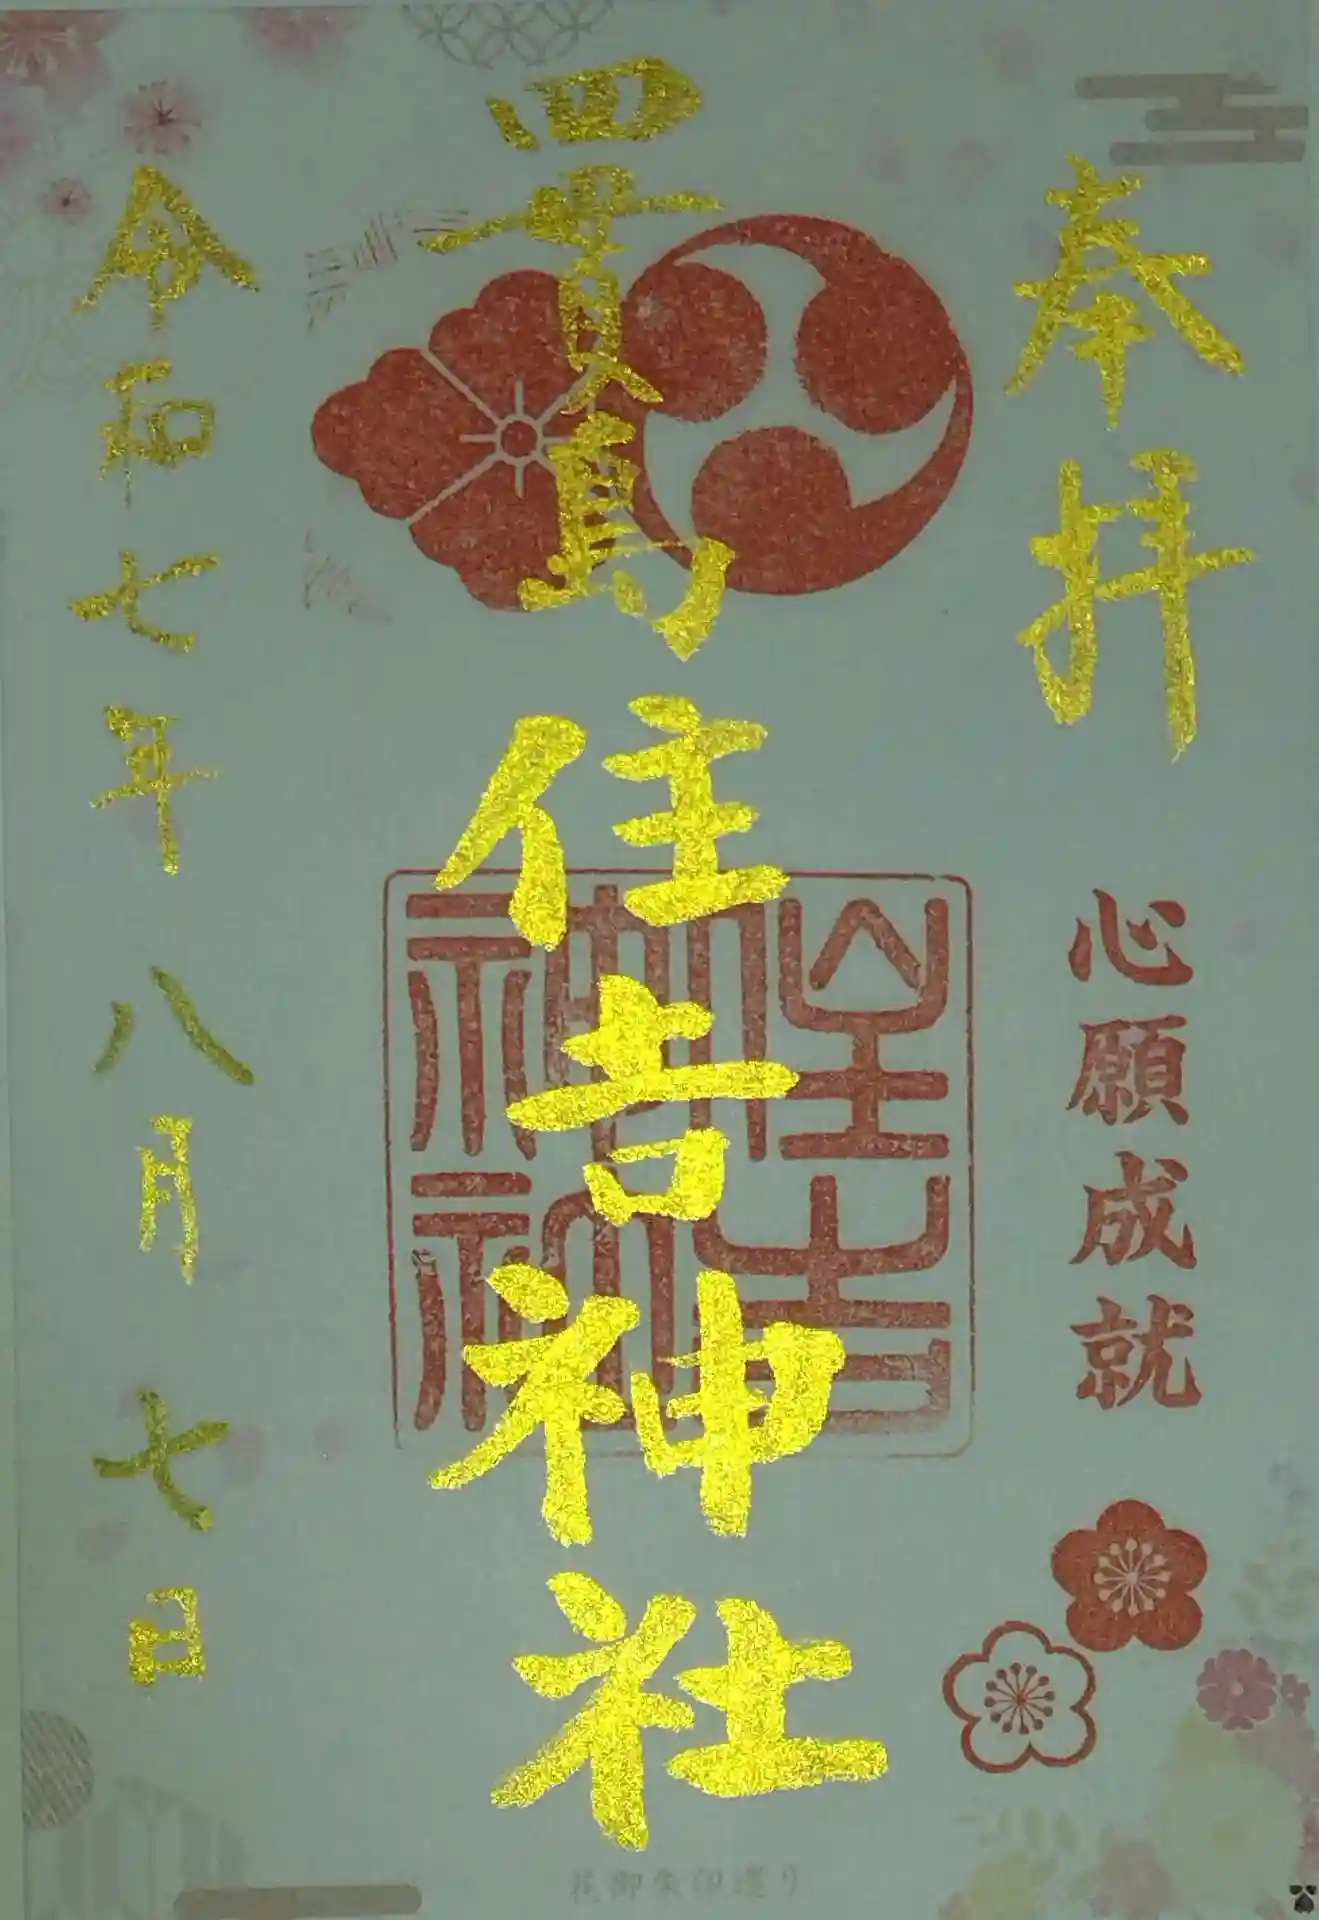 奉拝
心願成就
四貫島住吉神社
住吉神社
令和七年八月七日
花御朱印巡り